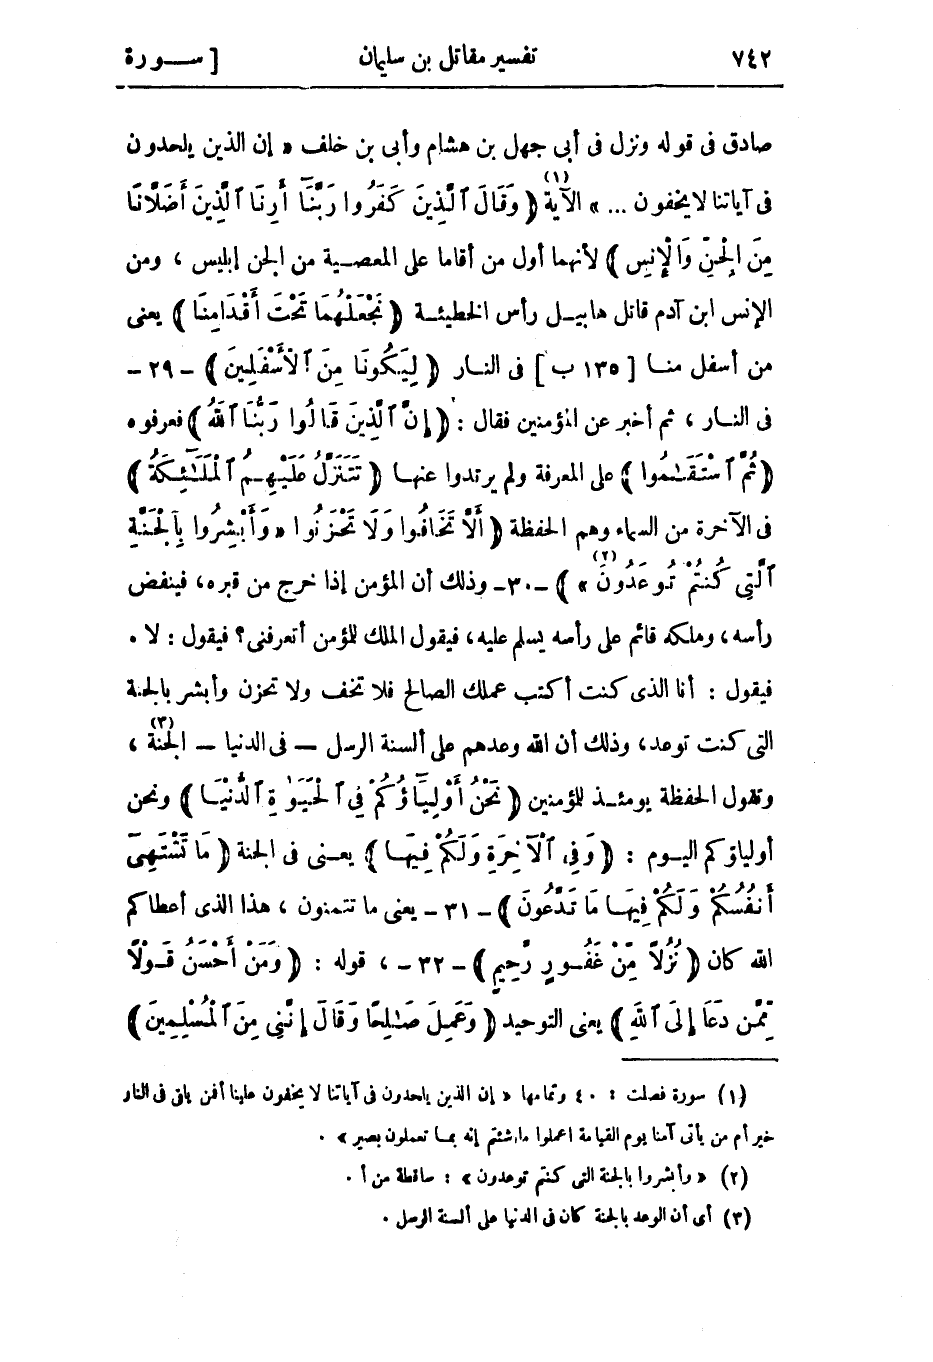 ٧٤٢ تفسير مقاتل بن سليمان [ ســورة
صادق فى قوله ونزل فى أبى جهل بن هشام وأبى بن خلف « إن الذين يلحدون
فى آياتنا لا يخفون ... » الآية (١) ( وَقَالَ ٱلَّذِينَ كَفَرُوا رَبَّنَآ أَرِنَا ٱلَّذِينَ أَضَلَّانَا
مِنَ ٱلْجِنِّ وَٱلْإِنسِ ) لأنهما أول من أقاما على المعصية من الجن إبليس ، ومن
الإنس ابن آدم قاتل هابيل رأس الخطيئة ( نَجْعَلْهُمَا تَحْتَ أَقْدَامِنَا ) يعنى
من أسفل منا [ ١٣٥ ب ] فى النار ( لِيَكُونَا مِنَ ٱلْأَسْفَلِينَ ) - ٢٩ -
فى النار ، ثم أخبر عن المؤمنين فقال : ( إِنَّ ٱلَّذِينَ قَالُوا رَبُّنَا ٱللَّهُ ) فعرفوه
( ثُمَّ ٱسْتَقَٰمُوا ) على المعرفة ولم يرتدوا عنها ( تَتَنَزَّلُ عَلَيْهِمُ ٱلْمَلَٰٓئِكَةُ )
فى الآخرة من السماء وهم الحفظة ( أَلَّا تَخَافُوا وَلَا تَحْزَنُوا « وَأَبْشِرُوا بِٱلْجَنَّةِ
ٱلَّتِى كُنتُمْ تُوعَدُونَ (٢) » ) - ٣٠ - وذلك أن المؤمن إذا خرج من قبره، فينفض
رأسه ، وملكه قائم على رأسه يسلم عليه، فيقول الملك للمؤمن أتعرفنى؟ فيقول : لا .
فيقول : أنا الذى كنت أكتب عملك الصالح فلا تخف ولا تحزن وأبشر بالجنة
التى كنت توعد، وذلك أن الله وعدهم على ألسنة الرسل — فى الدنيا — الجنة (٣) ،
وتقول الحفظة يومئذ للمؤمنين ( نَحْنُ أَوْلِيَآؤُكُمْ فِى ٱلْحَيَوٰةِ ٱلدُّنْيَا ) ونحن
أولياؤكم اليوم : ( وَفِى ٱلْآخِرَةِ وَلَكُمْ فِيهَا ) يعنى فى الجنة ( مَا تَشْتَهِىٓ
أَنفُسُكُمْ وَلَكُمْ فِيهَا مَا تَدَّعُونَ ) - ٣١ - يعنى ما تتمنون ، هذا الذى أعطاكم
الله كان ( نُزُلًا مِّنْ غَفُورٍ رَّحِيمٍ ) - ٣٢ - ، قوله : ( وَمَنْ أَحْسَنُ قَوْلًا
مِّمَّن دَعَآ إِلَى ٱللَّهِ ) يعنى التوحيد ( وَعَمِلَ صَٰلِحًا وَقَالَ إِنَّنِى مِنَ ٱلْمُسْلِمِينَ )
(١) سورة فصلت : ٤٠ وتمامها « إن الذين يلحدون فى آياتنا لا يخفون علينا أفمن يلقى فى النار
خير أم من يأتى آمنا يوم القيامة اعملوا ما شئتم إنه بما تعملون بصير » .
(٢) « وأبشروا بالجنة التى كنتم توعدون » : ساقطة من أ .
(٣) أى أن الوعد بالجنة كان فى الدنيا على ألسنة الرسل .